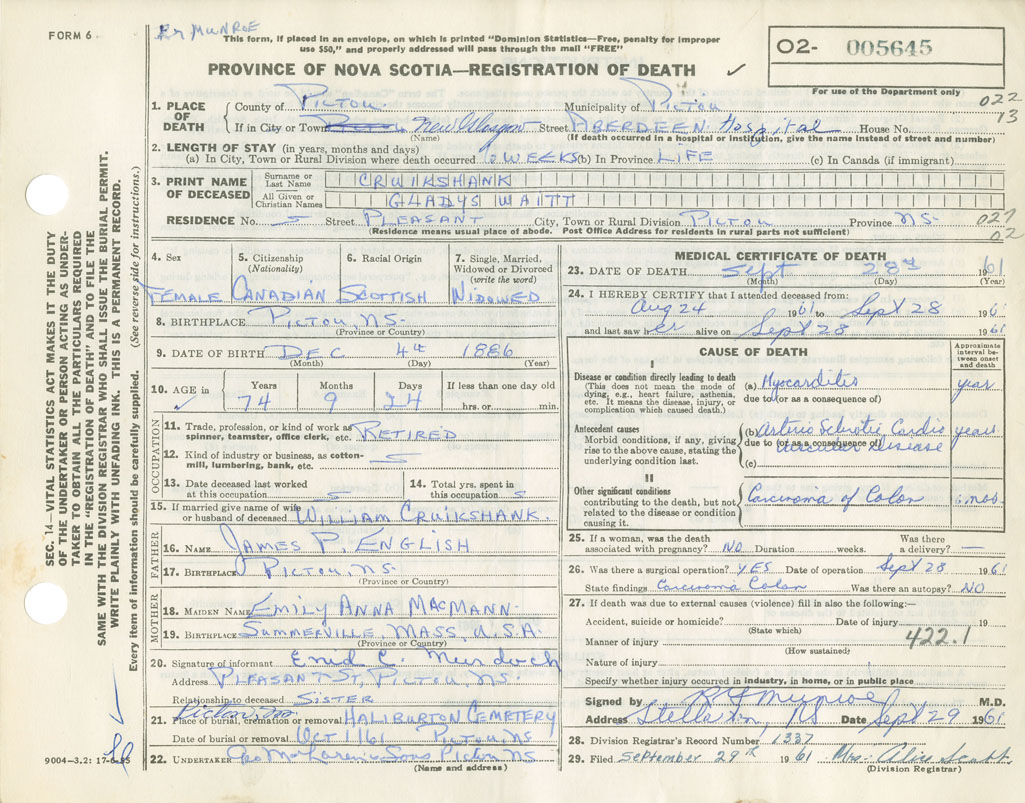 FORM 6
Dr MUNROE
This form, if placed in an envelope, on which is printed "Dominion Statistics—Free, penalty for improper
use $50," and properly addressed will pass through the mail "FREE"
O2- 005645
For use of the Department only
PROVINCE OF NOVA SCOTIA—REGISTRATION OF DEATH ✓
022
13
1. PLACE OF DEATH
County of PICTOU Municipality of PICTOU
If in City or Town New Glasgow Street ABERDEEN Hospital House No.
(Name) (If death occurred in a hospital or institution, give the name instead of street and number)
2. LENGTH OF STAY (in years, months and days)
(a) In City, Town or Rural Division where death occurred WEEKS (b) In Province LIFE (c) In Canada (if immigrant)
3. PRINT NAME OF DECEASED
Surname or Last Name CRUIKSHANK
All Given or Christian Names GLADYS WAITT
RESIDENCE No. 5 Street PLEASANT City, Town or Rural Division PICTOU Province NS.
(Residence means usual place of abode. Post Office Address for residents in rural parts not sufficient)
027
02
4. Sex 5. Citizenship (Nationality) 6. Racial Origin 7. Single, Married, Widowed or Divorced (write the word)
FEMALE CANADIAN SCOTTISH WIDOWED
8. BIRTHPLACE PICTOU NS.
(Province or Country)
9. DATE OF BIRTH DEC 4th 1886
(Month) (Day) (Year)
10. AGE in Years Months Days If less than one day old
✓ 74 9 24 hrs. or min.
OCCUPATION
11. Trade, profession, or kind of work as spinner, teamster, office clerk, etc. RETIRED
12. Kind of industry or business, as cotton-mill, lumbering, bank, etc.
13. Date deceased last worked at this occupation
14. Total yrs. spent in this occupation
15. If married give name of wife or husband of deceased WILLIAM CRUIKSHANK
FATHER
16. NAME JAMES P. ENGLISH
17. BIRTHPLACE PICTOU, NS.
(Province or Country)
MOTHER
18. MAIDEN NAME EMILY ANNA MACMANN
19. BIRTHPLACE SUMMERVILLE, MASS, U.S.A.
(Province or Country)
20. Signature of informant Enid C. Murdoch
Address PLEASANT ST, PICTOU, NS.
Relationship to deceased SISTER
21. Place of burial, cremation or removal HALIBURTON CEMETERY
Date of burial or removal OCT 1/61 PICTOU, NS
22. UNDERTAKER Geo McLaren & Sons Pictou NS
(Name and address)
MEDICAL CERTIFICATE OF DEATH
23. DATE OF DEATH Sept 28th 1961
(Month) (Day) (Year)
24. I HEREBY CERTIFY that I attended deceased from:
Aug 24 1961 to Sept 28 1961
and last saw her alive on Sept 28 1961
CAUSE OF DEATH
Approximate interval between onset and death
I
Disease or condition directly leading to death
(This does not mean the mode of dying, e.g., heart failure, asthenia, etc. It means the disease, injury, or complication which caused death.)
(a) Myocarditis year
due to (or as a consequence of)
Antecedent causes
Morbid conditions, if any, giving rise to the above cause, stating the underlying condition last.
(b) Arterio Sclerotic Cardio years
due to (or as a consequence of)
vascular Disease
(c)
II
Other significant conditions
contributing to the death, but not related to the disease or condition causing it.
Carcinoma of Colon mos
25. If a woman, was the death associated with pregnancy? NO Duration weeks. Was there a delivery? —
26. Was there a surgical operation? YES Date of operation Sept 28 1961
State findings Carcinoma Colon Was there an autopsy? NO
27. If death was due to external causes (violence) fill in also the following:—
Accident, suicide or homicide? Date of injury 19
(State which)
Manner of injury 422.1
(How sustained)
Nature of injury
Specify whether injury occurred in industry, in home, or in public place
Signed by Munroe M.D.
Address Stellarton, NS Date Sept 29 1961
28. Division Registrar's Record Number 1337
29. Filed September 29th 1961 Mrs. Alice Scott
(Division Registrar)
SEC. 14—VITAL STATISTICS ACT MAKES IT THE DUTY
OF THE UNDERTAKER OR PERSON ACTING AS UNDER-
TAKER TO OBTAIN ALL THE PARTICULARS REQUIRED
IN THE "REGISTRATION OF DEATH" AND TO FILE THE
SAME WITH THE DIVISION REGISTRAR WHO SHALL ISSUE THE BURIAL PERMIT.
WRITE PLAINLY WITH UNFADING INK. THIS IS A PERMANENT RECORD.
Every item of information should be carefully supplied. (See reverse side for instructions.)
9004-3.2: 17-6-55